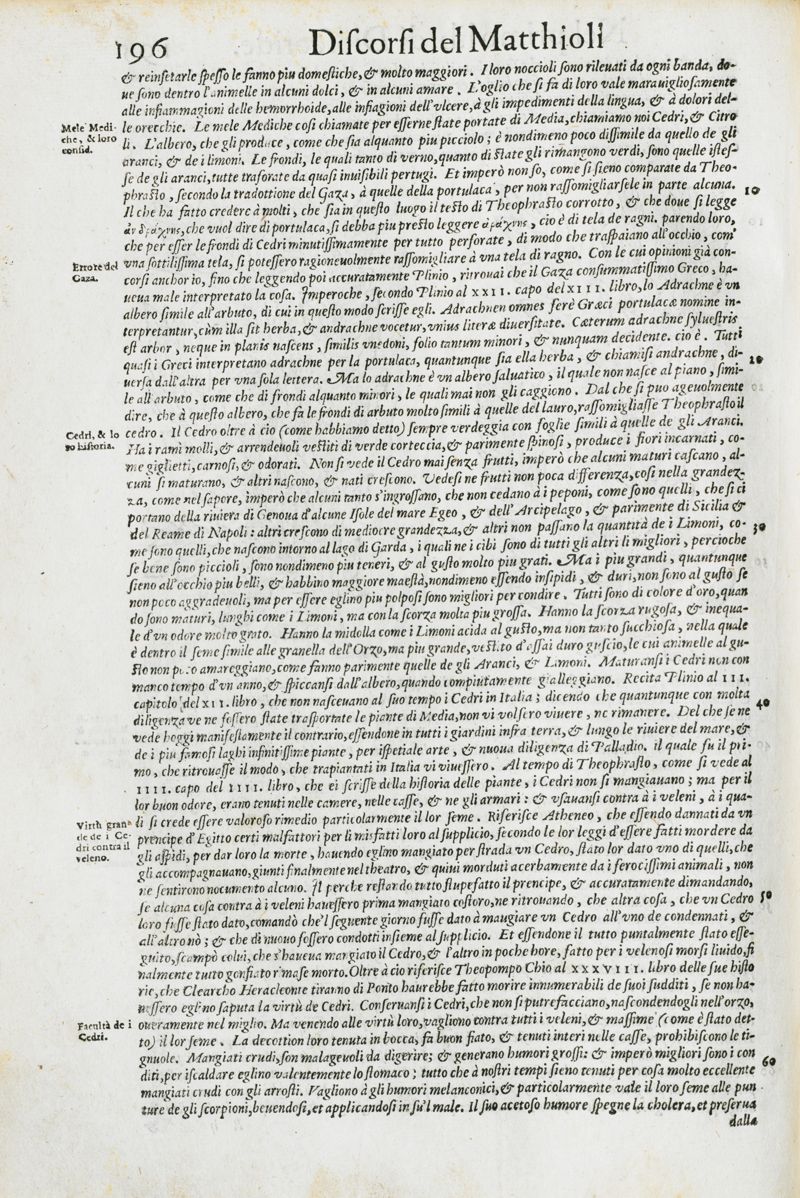 196 Discorsi del Matthioli
& reinsetarle spesso le fanno piu domestiche, & molto maggiori. I loro noccioli sono rileuati da ogni banda, do-
ue sono dentro l'animelle in alcuni dolci, & in alcuni amare. L'oglio che si fa di loro vale marauigliosamente
alle infiammagioni delle hemorrhoide, alle infiagioni dell'vlcere, à gli impedimenti della lingua, & à dolori del-
le orecchie. Le mele Mediche cosi chiamate per esserne state portate di Media, chiamiamo noi Cedri, & Citro
Mele Medi-
che, & loro
consid.
li. L'albero, che gli produce, come che sia alquanto piu picciolo; è nondimeno poco dissimile da quello de gli
aranci, & de i limoni. Le frondi, le quali tanto di verno, quanto di state gli rimangono verdi, sono quelle istes-
se de gli aranci, tutte traforate da quasi inuisibili pertugi. Et imperò non so, come si sieno comparate da Theo-
phrasto, secondo la tradottione del Gaza, à quelle della portulaca, per non rassomigliarsele in parte alcuna.
10
Il che ha fatto credere à molti, che sia in questo luogo il testo di Theophrasto corrotto, & che doue si legge
ἀνδράχνης, che vuol dire di portulaca, si debba piu presto leggere ἀράχνης, cio è di tela de ragni. parendo loro,
che per esser le frondi di Cedri minutissimamente per tutto perforate, di modo che traspaiano all'occhio, com'
vna sottilissima tela, si potessero ragioneuolmente rassomigliare à vna tela di ragno. Con le cui opinioni già con-
Errore del
Gaza.
corsi anchor io, fino che leggendo poi accuratamente Plinio, ritrouai che il Gaza consummatissimo Greco, ha-
ueua male interpretato la cosa. Imperoche, secondo Plinio al XXII. capo del XIII. libro, lo Adrachne è vn
albero simile all'arbuto, di cui in questo modo scrisse egli. Adrachnen omnes ferè Græci portulacæ nomine in-
terpretantur, cùm illa sit herba, & andrachne vocetur, vnius literæ diuersitate. Cæterum adrachne syluestris
est arbor, neque in planis nascens, similis vnedoni, folio tantum minori, & nunquam decidente. cio è. Tutti
quasi i Greci interpretano adrachne per la portulaca, quantunque sia ella herba, & chiamisi andrachne, di-
20
uersa dall'altra per vna sola lettera. Ma lo adrachne è vn albero saluatico, il quale non nasce al piano, simi-
le all'arbuto, come che di frondi alquanto minori, le quali mai non gli caggiono. Dal che si puo ageuolmente
dire, che à questo albero, che fa le frondi di arbuto molto simili à quelle del lauro, rassomigliasse Theophrasto il
cedro. Il Cedro oltre à cio (come habbiamo detto) sempre verdeggia con foglie simili à quelle de gli Aranci.
Cedri, & lo
ro historia.
Ha i rami molli, & arrendeuoli vestiti di verde corteccia, & parimente spinosi, produce i fiori incarnati, co-
me gighetti, carnosi, & odorati. Non si vede il Cedro mai senza frutti, imperò che alcuni maturi cascano, al-
cuni si maturano, & altri nascono, & nati crescono. Vedesi ne frutti non poca differenza, cosi nella grandez-
za, come nel sapore, imperò che alcuni tanto s'ingrossano, che non cedano à i peponi, come sono quelli, che si ci
portano della riuiera di Genoua d'alcune Isole del mare Egeo, & dell'Arcipelago, & parimente di Sicilia &
del Reame di Napoli: altri crescono di mediocre grandezza, & altri non passano la quantità de i Limoni, co-
30
me sono quelli, che nascono intorno al lago di Garda, i quali ne i cibi sono di tutti gli altri li migliori, percioche
se bene sono piccioli, sono nondimeno piu teneri, & al gusto molto piu grati. Ma i piu grandi, quantunque
sieno all'occhio piu belli, & habbino maggiore maestà, nondimeno essendo insipidi, & duri, non sono al gusto se
non poco aggradeuoli, ma per essere eglino piu polposi sono migliori per condire. Tutti sono di colore d'oro, quan
do sono maturi, lunghi come i Limoni, ma con la scorza molta piu grossa. Hanno la scorza rugosa, & inequa-
le d'vn odore molto grato. Hanno la midolla come i Limoni acida al gusto, ma non tanto succhiosa, nella quale
è dentro il seme simile alle granella dell'Orzo, ma piu grande, vestito d'assai duro guscio, le cui animelle al gu-
sto non poco amareggiano, come fanno parimente quelle de gli Aranci, & Limoni. Maturansi i Cedri non con
manco tempo d'vn anno, & spiccansi dall'albero, quando compiutamente gialleggiano. Recita Plinio al III.
capitolo del XII. libro, che non nasceuano al suo tempo i Cedri in Italia; dicendo che quantunque con molta
40
diligenza ve ne fossero state trasportate le piante di Media, non vi volsero viuere, ne rimanere. Del che se ne
vede hoggi manifestamente il contrario, essendone in tutti i giardini infra terra, & lungo le riuiere del mare, &
de i piu famosi laghi infinitissime piante, per ispetiale arte, & nuoua diligenza di Palladio. il quale fu il pri-
mo, che ritrouasse il modo, che trapiantati in Italia vi viuessero. Al tempo di Theophrasto, come si vede al
IIII. capo del IIII. libro, che ei scrisse della historia delle piante, i Cedri non si mangiauano; ma per il
lor buon odore, erano tenuti nelle camere, nelle casse, & ne gli armari: & vsauansi contra à i veleni, à i qua-
Virtù gran-
de de i Ce-
dri contra il
veleno.
li si crede essere valoroso rimedio particolarmente il lor seme. Riferisce Atheneo, che essendo dannati da vn
prencipe d'Egitto certi malfattori per li misfatti loro al supplicio, secondo le lor leggi d'essere fatti mordere da
gli aspidi, per dar loro la morte, hauendo eglino mangiato per strada vn Cedro, stato lor dato vno di quelli, che
gli accompagnauano, giunti finalmente nel theatro, & quiui morduti acerbamente da i ferocissimi animali, non
ne sentirono nocumento alcuno. Il perche restando tutto stupefatto il prencipe, & accuratamente dimandando,
50
se alcuna cosa contra à i veleni hauessero prima mangiato costoro, ne ritrouando, che altra cosa, che vn Cedro
loro fusse stato dato, comandò che'l seguente giorno fusse dato à maugiare vn Cedro all'vno de condennati, &
all'altro nò; & che di nuouo fossero condotti insieme al supplicio. Et essendone il tutto puntalmente stato esse-
guito, scampò colui, che s'haueua mangiato il Cedro, & l'altro in poche hore, fatto per i velenosi morsi liuido, fi
nalmente tutto gonfiato rimase morto. Oltre à cio riferisce Theopompo Chio al XXXVIII. libro delle sue histo
rie, che Clearcho Heracleonte tiranno di Ponto haurebbe fatto morire innumerabili de suoi sudditi, se non ha-
uessero eglino saputa la virtù de Cedri. Conseruansi i Cedri, che non si putrefacciano, nascondendogli nell'orzo,
Facultà de i
Cedri.
oueramente nel miglio. Ma venendo alle virtù loro, vagliono contra tutti i veleni, & massime (come è stato det-
to) il lor seme. La decottion loro tenuta in bocca, fa buon fiato, & tenuti interi nelle casse, prohibiscono le ti-
gnuole. Mangiati crudi, son malageuoli da digerire; & generano humori grossi: & imperò migliori sono i con
60
diti, per iscaldare eglino valentemente lo stomaco; tutto che à nostri tempi sieno tenuti per cosa molto eccellente
mangiati crudi con gli arrosti. Vagliono à gli humori melanconici, & particolarmente vale il loro seme alle pun
ture de gli scorpioni, beuendosi, et applicandosi in su'l male. Il suo acetoso humore spegne la cholera, et preserua
dalla